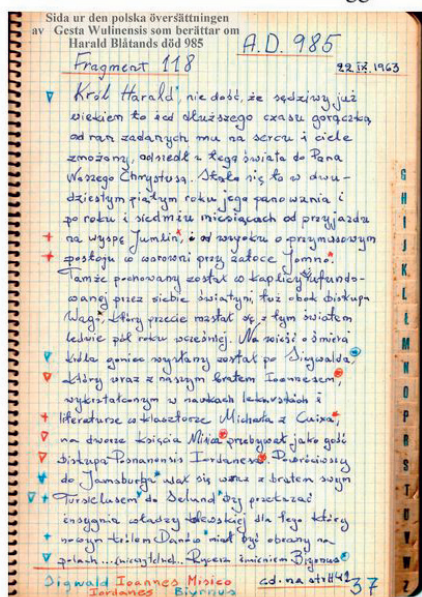 Sida ur den polska översättningen
av Gesta Wulinensis som berättar om
Harald Blåtands död 985
A.D. 985
Fragment 118
22 IX 1963
Król Harald, nie dość, że sędziwy już
wiekiem to od dłuższego czasu gorączką
od ran zadanych mu na sercu i ciele
zmożony, odszedł z tego świata do Pana
Naszego Chrystusa. Stało się to w dwu-
dziestym piątym roku jego panowania i
po roku i siedmiu miesiącach od przyjazdu
na wyspę Jumlin, i od wyroku o przymusowym
postoju w warowni przy zatoce Jomno.
Tamże pochowany został w kaplicy ufundo-
wanej przez siebie świątyni, tuż obok biskupa
Wago, który przecie rozstał się z tym światem
ledwie pół roku wcześniej. Na wieść o śmierci
króla goniec wysłany został po Sigwalda,
który wraz z naszym bratem Ioannesem,
wykształconym w naukach lekarskich i
literaturze w klasztorze Michała z Cuixa,
na dworze księcia Misica przebywał jako gość
biskupa Posnanensis Iordanesa. Powróciwszy
do Jomsburga udał się wraz z bratem swym
Turkielusem do Selund by przekazać
insygnia władzy królewskiej dla tego który
nowym królem Danów miał być obrany na
polach ... (nieczytelne)... Rycerz imieniem Biyrnus
Sigwald Ioannes Misico
Iordanes Biyrnus
cd. na str 42
37
G
H
I
J
K
L
Ł
M
N
O
P
R
S
T
U
V
W
Z